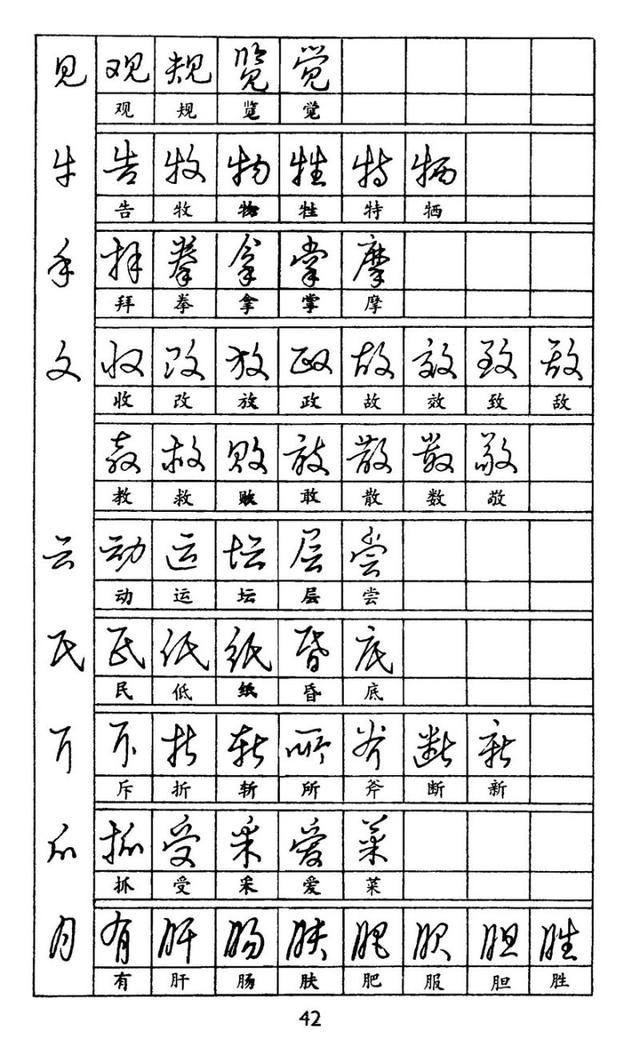 见 观 规 览 觉
观 规 览 觉
牛 告 牧 物 牲 特 牺
告 牧 物 牲 特 牺
手 拜 拳 拿 掌 摩
拜 拳 拿 掌 摩
攵 收 改 放 政 故 效 致 敌
收 改 放 政 故 效 致 敌
教 救 败 敢 散 数 敬
教 救 败 敢 散 数 敬
云 动 运 坛 层 尝
动 运 坛 层 尝
氏 民 低 纸 昏 底
民 低 纸 昏 底
斤 斥 折 斩 所 斧 断 新
斥 折 斩 所 斧 断 新
爪 抓 受 采 爱 菜
抓 受 采 爱 菜
月 有 肝 肠 肤 肥 服 胆 胜
有 肝 肠 肤 肥 服 胆 胜
42